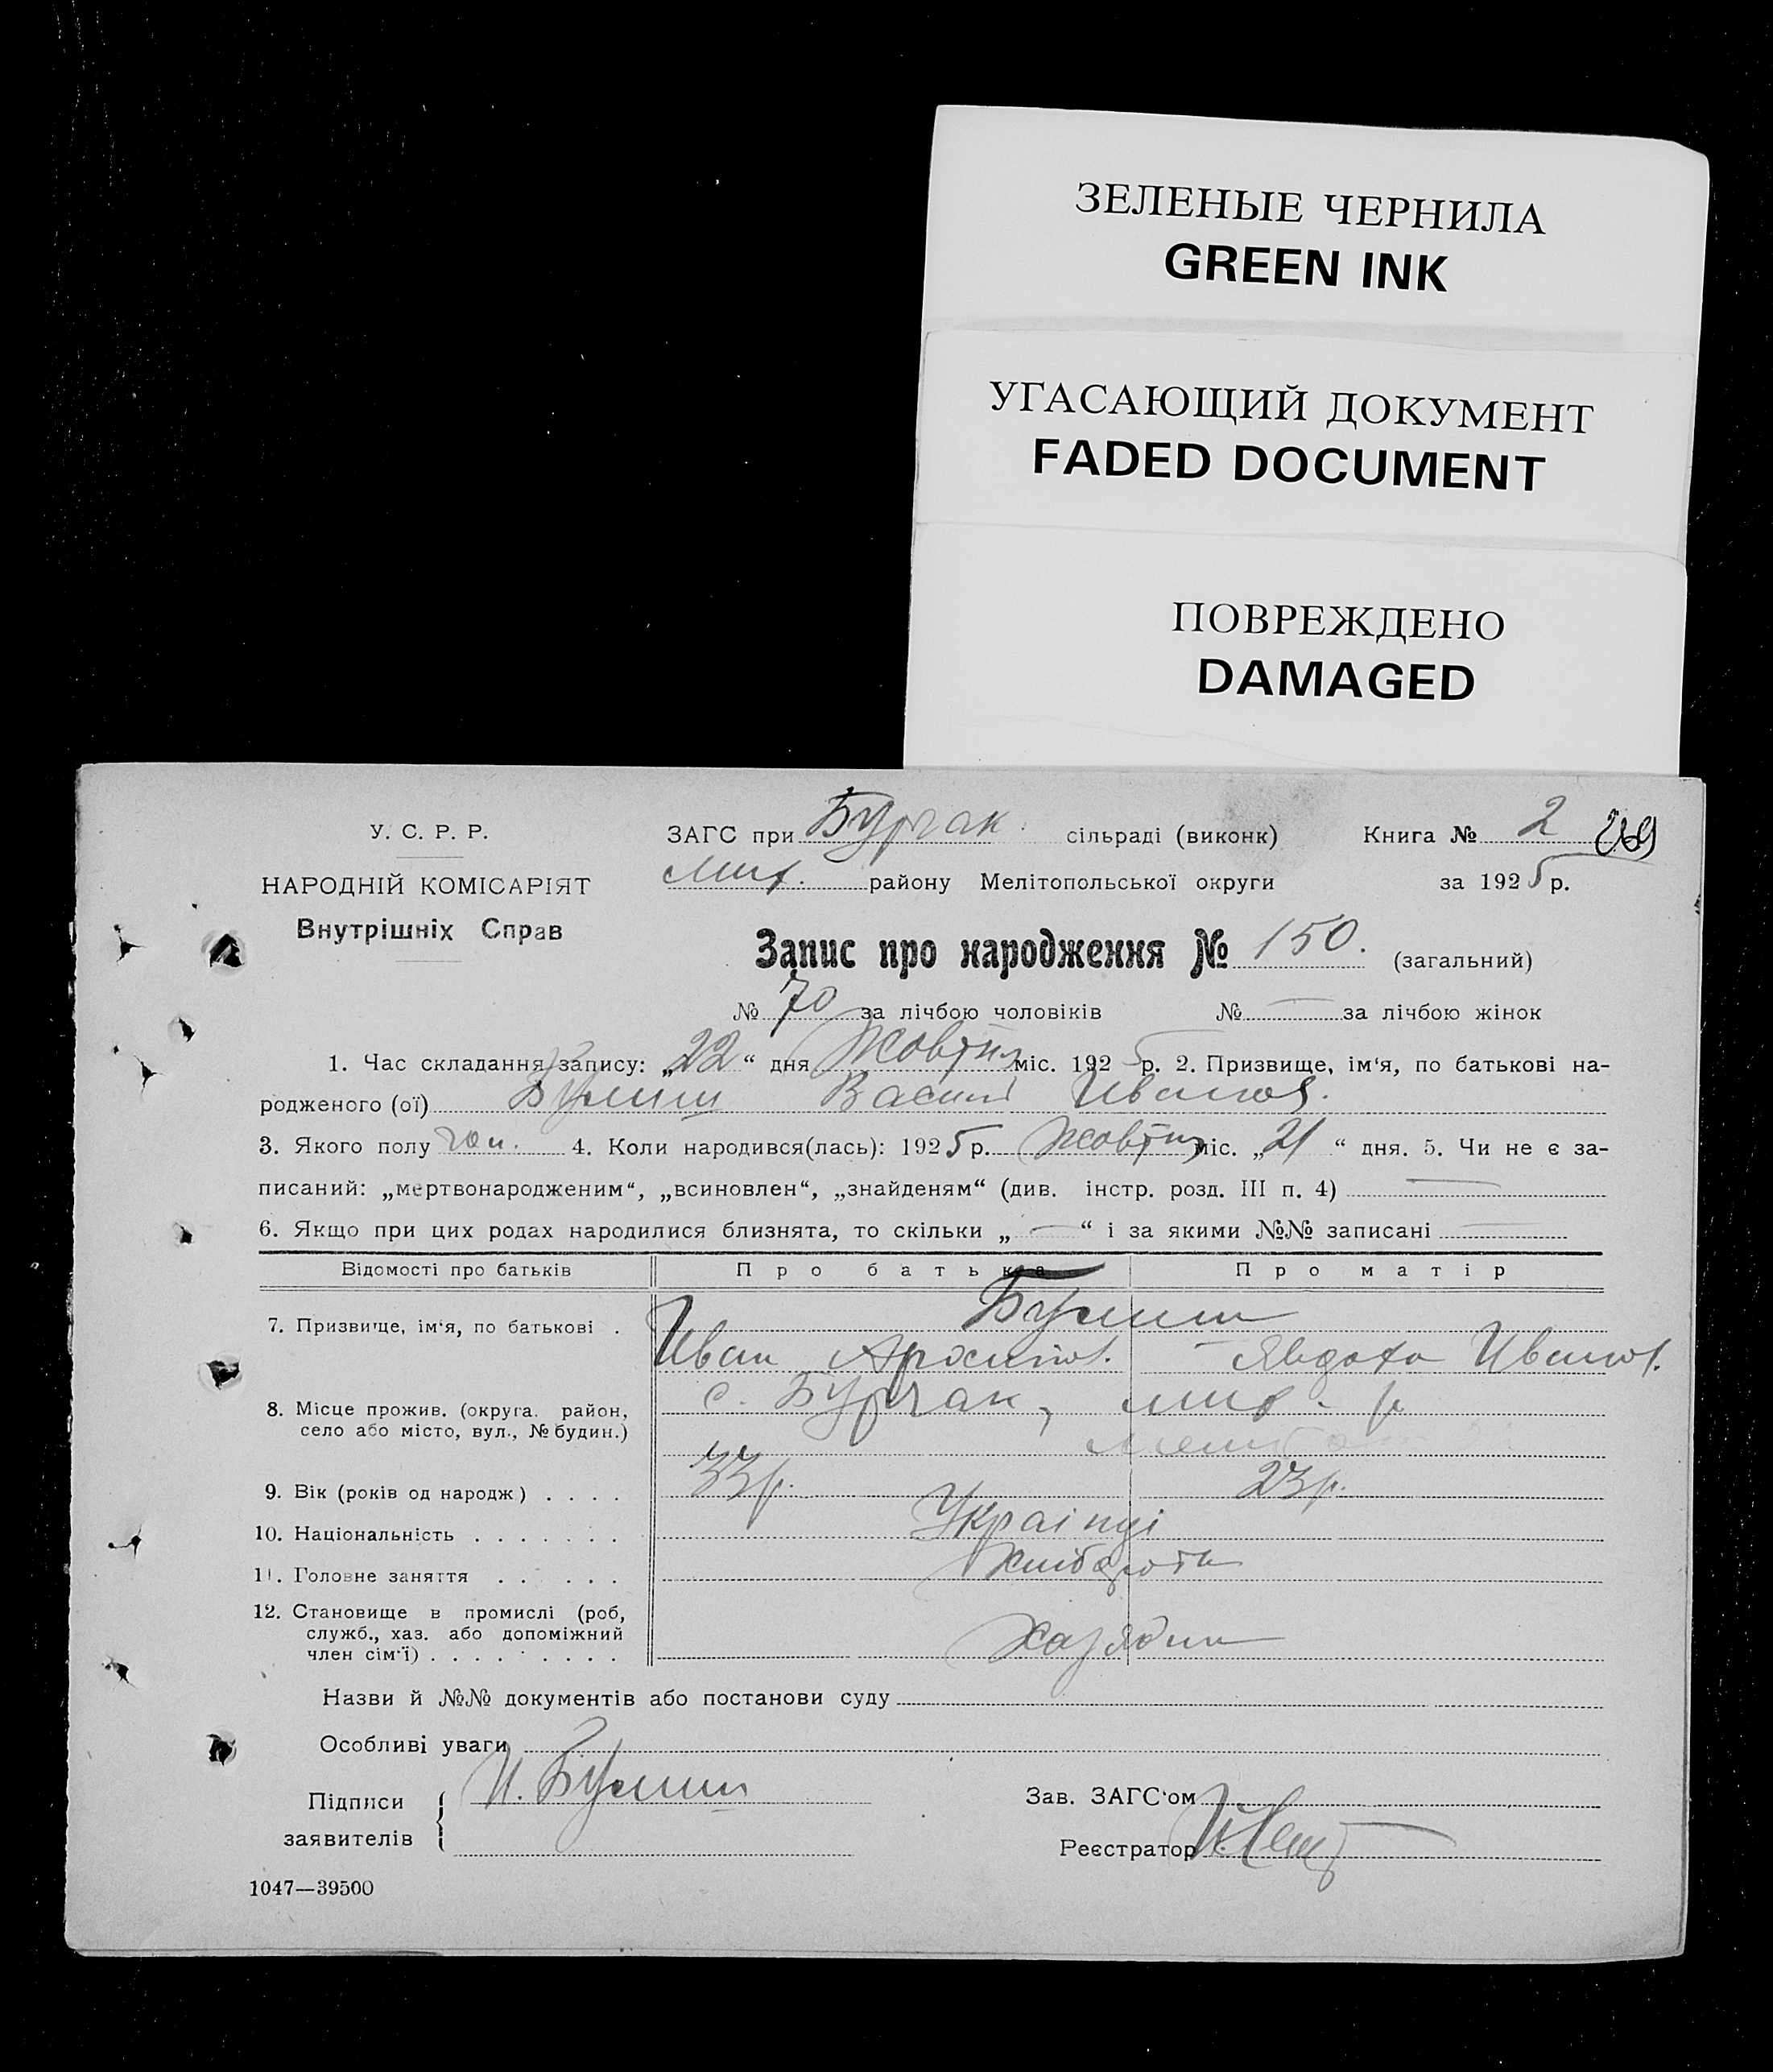 ЗЕЛЕНЫЕ ЧЕРНИЛА
GREEN INK
УГАСАЮЩИЙ ДОКУМЕНТ
FADED DOCUMENT
ПОВРЕЖДЕНО
DAMAGED
У. С. Р. Р.
НАРОДНІЙ КОМІСАРІЯТ
Внутрішніх Справ
ЗАГС при Бурчак. сільраді (виконк) Книга № 2
району Мелітопольської округи за 1925 р.
Запис про народження № 150. (загальний)
№ 70 за лічбою чоловіків № — за лічбою жінок
1. Час складання запису: „22“ дня Жовтня міс. 1925 р. 2. Призвище, ім‘я, по батькові на-
родженого (ої) Василь Иванов.
3. Якого полу чол. 4. Коли народився(лась): 1925 р. Жовтня міс. „21“ дня. 5. Чи не є за-
писаний: „мертвонародженим“, „всиновлен“, „знайденям“ (див. інстр. розд. III п. 4) —
6. Якщо при цих родах народилися близнята, то скільки „—“ і за якими №№ записані —
Відомості про батьків Про батька Про матір
7. Призвище, ім‘я, по батькові .
Иван Явдоха Иванов.
8. Місце прожив. (округа, район, с. Бурчак, р
село або місто, вул., № будин.)
9. Вік (років од народж) . . . . 33 р. 23 р.
10. Національність . . . . . . . Українці
11. Головне заняття . . . . . . Хлібороби
12. Становище в промислі (роб,
служб., хаз. або допоміжний
член сім‘ї) . . . . . . . . .
Назви й №№ документів або постанови суду
Особливі уваги
Підписи
заявителів
Зав. ЗАГС‘ом
Реєстратор
1047—39500